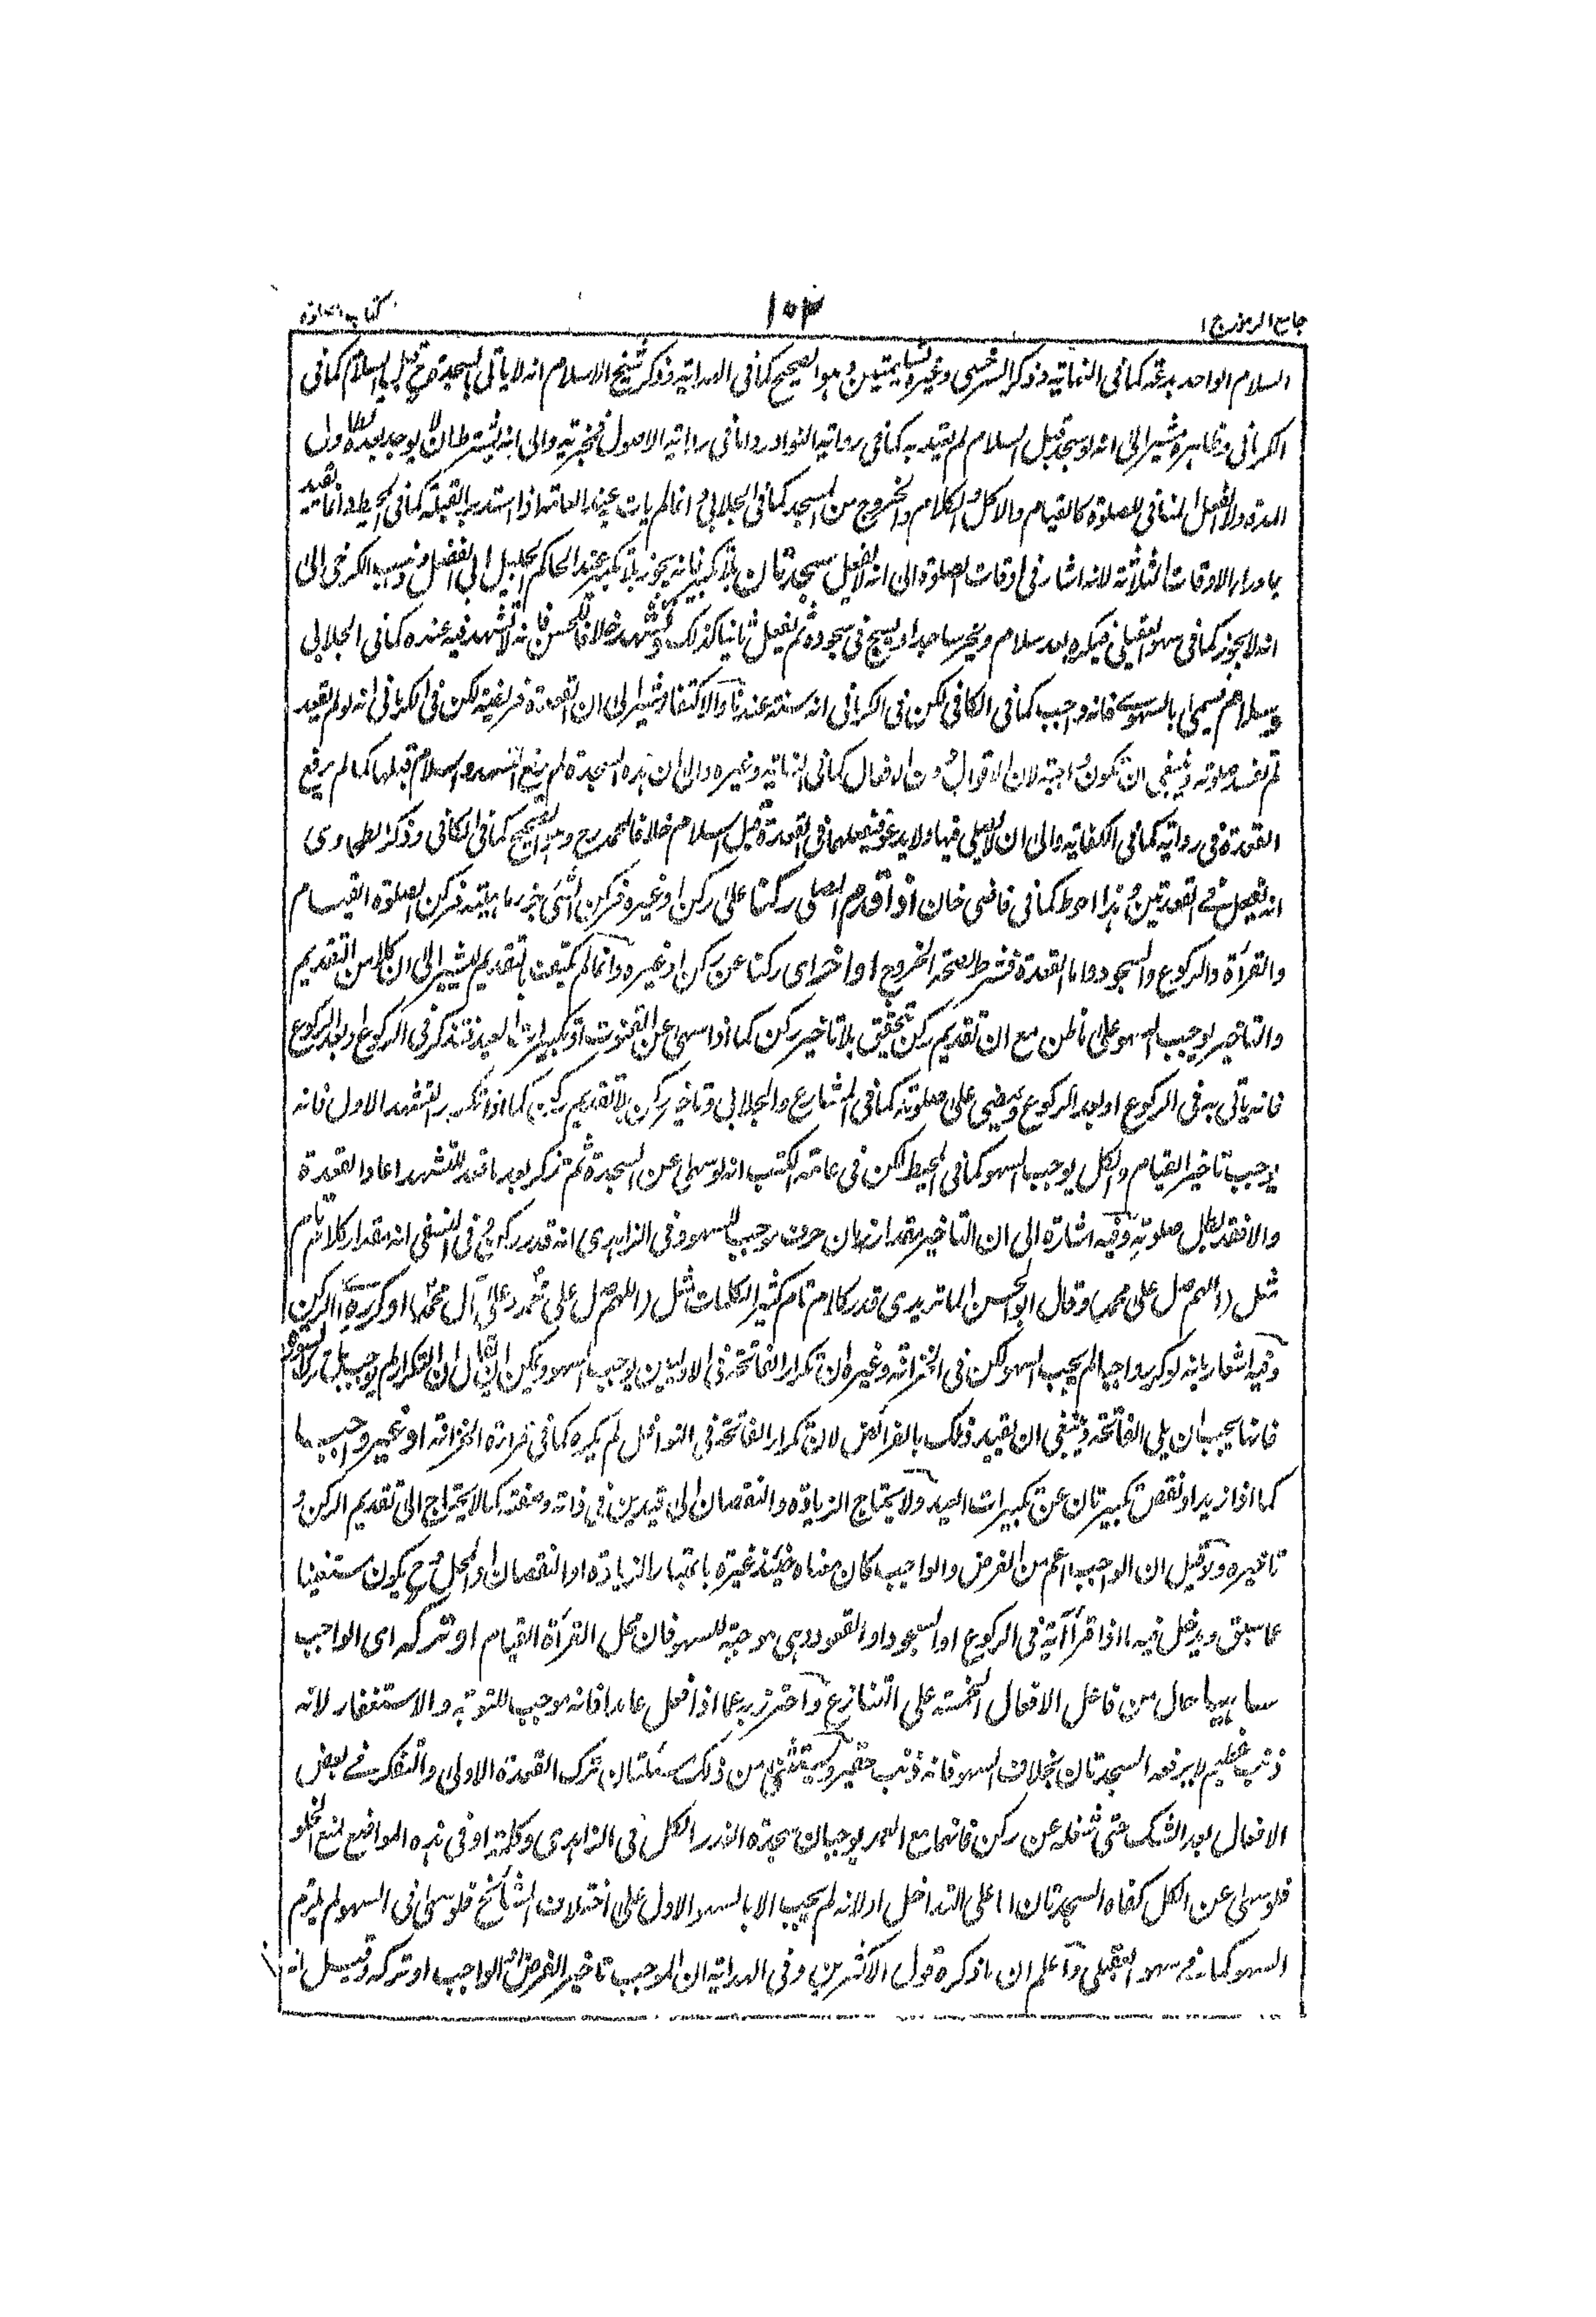 جامع الرموز ج ١
١٠٣
كتاب الصلوة
السلام الواحد بدعة كما في النهاية وذكر السرخسي وغيره تسليمتين وهو الصحيح كما في الهداية وذكر شيخ الاسلام انه لا ياتي السجدة قبل السلام كما في
الكرماني وظاهره مشير الى انه لو سجد قبل السلام لم يعتد به كما في رواية النوادر واما في رواية الاصول فيجزيه والى انه يشترط ان لا يوجد بعده
المدة ولا الفعل المنافي للصلوة كالقيام والاكل والكلام والخروج من المسجد كما في الجلابي وانما لم يات عند العامة اذا استدبر القبلة كما في المحيط وانما
ما وراء الاوقات الثلاثة لانه اشار في اوقات الصلوة الى انه لا يفعل سجدتان بلا تكبير فانه يجوز بلا تكبير عند الحاكم الجليل ابي الفضل وذهب الكرخي الى
انه لا يجوز كما في سهو البقيلي فيكبر بعد سلام ويخر ساجدا ويسبح في سجوده ثم يفعل ثانيا كذلك وتشهد خلافا للحسن فانه لا تشهد فيه عنده كما في الجلابي
وسلام يسمى بالسهو فانه واجب كما في الكافي لكن في الكرماني انه سنة عندنا والاكتفاء مشير الى ان القعدة فريضة لكن في الكرماني انه لو لم يقعد
لم تفسد صلوته وينبغي ان تكون واجبة لان الاقوال دون الافعال كما في النهاية وغيره والى ان هذه السجدة لم يرفع التشهد والسلام قبلها كما لم يرفع
القعدة في رواية كما في الكفاية والى ان لا يصلي فيها ولا يدعو فيفعلهما في القعدة قبل السلام خلافا لمحمد رح وهو الصحيح كما في الكافي وذكر الطحاوي
انه يفعل في القعدتين وهذا احوط كما في قاضي خان اذا قدم المصلي ركنا على ركن او غيره فركن الشئ جزء ماهيته فركن الصلوة القيام
والقراة والركوع والسجود واما القعدة فشرط لصحة الخروج او اخر اي ركنا عن ركن او غيره وانما لم يكتف بالتقديم ليشير الى ان كلا من التقديم
والتاخير يوجب السهو على ما ظن مع ان تقديم ركن تحقق بلا تاخير ركن كما اذا سهى عن القنوت او تكبيرات العيد فتذكر في الركوع او بعد الركوع
فانه ياتي به في الركوع او بعد الركوع ويمضي على صلوته كما في المشارع والجلابي وتاخير ركن بلا تقديم ركن كما اذا كرر التشهد الاول فانه
يوجب تاخير القيام والكل يوجب السهو كما في المحيط لكن في عامة الكتب انه لو سهى عن السجدة ثم تذكر بعد ما قعد للتشهد اعاد القعدة
والا فقد بطل صلوته وفيه اشارة الى ان التاخير مقدار زمان حرف موجب للسهو وفي الزاهدي انه قدر ركن وفي النسفي انه مقدار كلام تام
مثل (اللهم صل على محمد) وقال ابو الحسن الماتريدي قدر كلام تام كثير الكلمات مثل (اللهم صل على محمد وعلى آل محمد) او كرره اي الركن
وفيه اشعار بانه لو كرر واجبا لم يجب السهو لكن في الخزانة وغيره ان تكرار الفاتحة في الاوليين يوجب السهو ويمكن ان يقال ان التكرار لم يوجب بل ترك السورة
فانها يجب ان يلي الفاتحة وينبغي ان يقيد ذلك بالفرائض لان تكرار الفاتحة في النوافل لم يكره كما في قراءة الخزانة او غير واجب ما
كما اذا زيد او نقص تكبيرتان عن تكبيرات العيد ولا يحتاج الزيادة والنقصان الى قيدين في ذاته وصفته كما لا يحتاج الى تقديم الركن و
تاخيره ولا قيل ان الواجب اعم من الفرض والواجب كان معناه حينئذ غيره باعتبار الزيادة او النقصان او المحل وح يكون مستغنيا
عما سبق ويدخل فيه ما اذا قرأ آية في الركوع او السجود او القعود وهي موجبة للسهو فان محل القرأة القيام او تركه اي الواجب
ساهيا حال من فاعل الافعال الخمسة على التنازع واحترز به عما اذا فعل عامدا فانه موجب للتوبة والاستغفار لانه
ذنب عظيم لا يرفعه السجدتان بخلاف السهو فانه ذنب حقير ويستثنى من ذلك مسئلتان ترك القعدة الاولى والتفكر في بعض
الافعال بعد الشك حتى شغله عن ركن فانهما مع العمد يوجبان سجدة العذر الكل في الزاهدي وكلمة او في هذه المواضع لمنع الخلو
فلو سهى عن الكل كفاه السجدتان اما على التداخل او لانه لم يجب الا بالسهو الاول على اختلاف المشائخ فلو سهى في السهو لم يلزم
السهو كما في سهو البقيلي واعلم ان ما ذكره قول الاكثرين وفي الهداية ان الموجب تاخير الفرض او الواجب او تركه وقيل انه